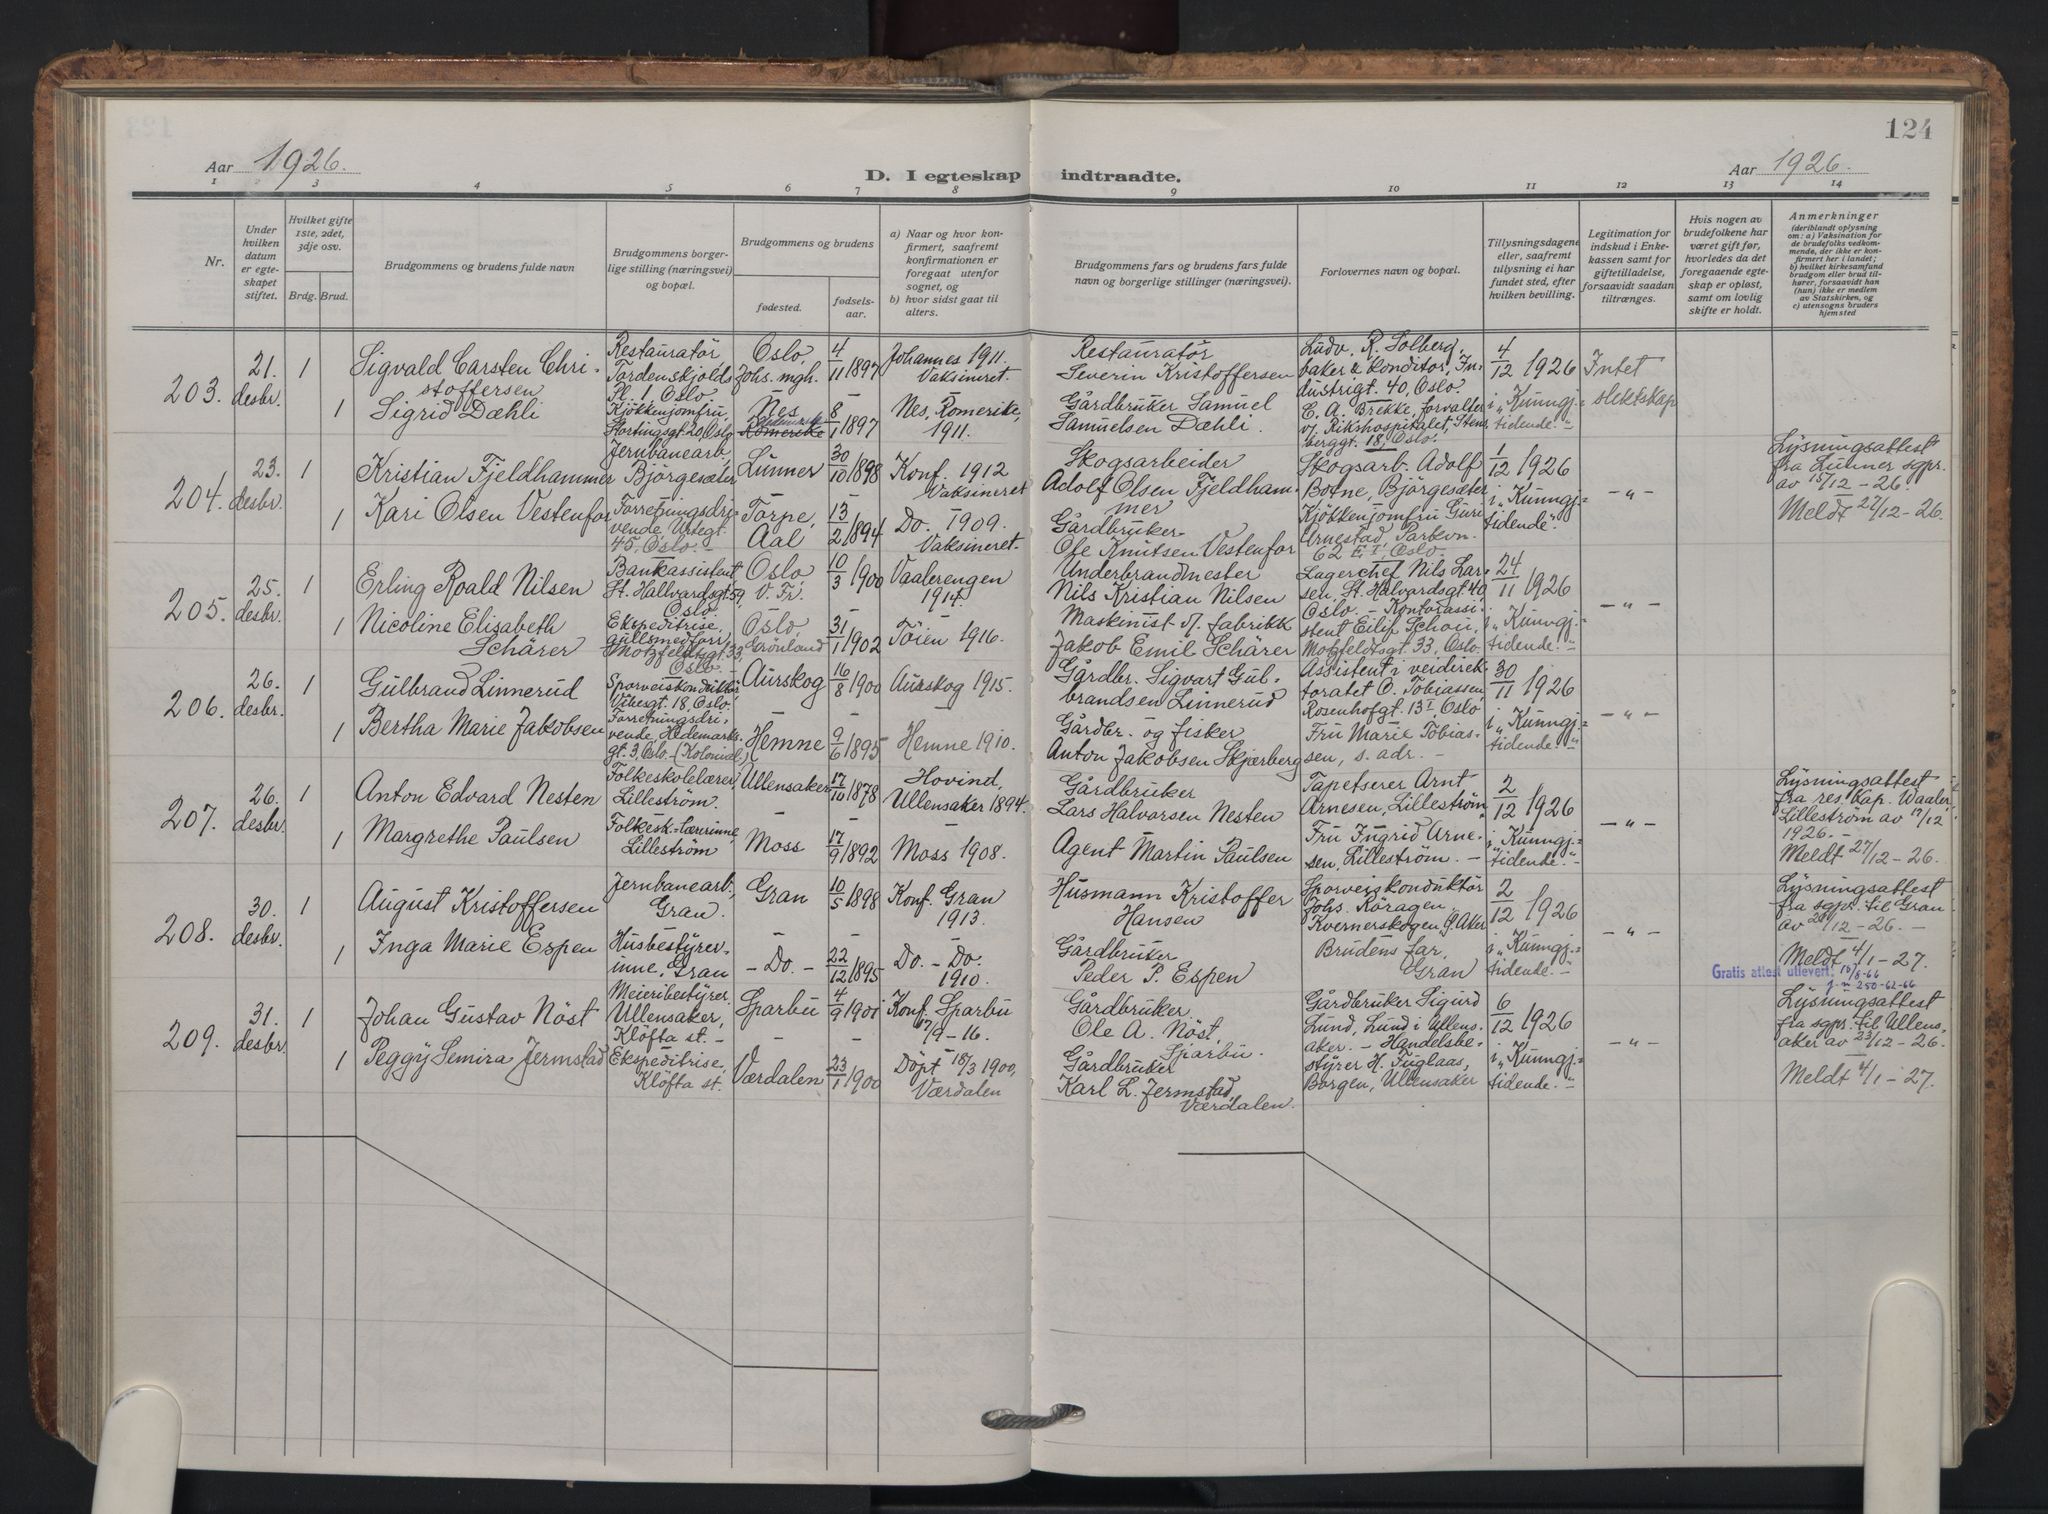 124
Aar 1926.
D. I egteskap indtraadte.
Aar 1926.
1 2 3 4 5 6 7 8 9 10 11 12 13 14
Nr.
Under hvilken datum er egteskapet stiftet.
Hvilket gifte 1ste, 2det, 3dje osv.
Brdg. Brud.
Brudgommens og brudens fulde navn
Brudgommens borgerlige stilling (næringsvei) og bopæl.
Brudgommens og brudens
fødested.
fødselsaar.
a) Naar og hvor konfirmert, saafremt konfirmationen er foregaat utenfor sognet, og
b) hvor sidst gaat til alters.
Brudgommens fars og brudens fars fulde navn og borgerlige stillinger (næringsvei).
Forlovernes navn og bopæl.
Tillysningsdagene eller, saafremt tillysning ei har fundet sted, efter hvilken bevilling.
Legitimation for indskud i Enkekassen samt for giftetilladelse, forsaavidt saadan tiltrænges.
Hvis nogen av brudefolkene har været gift før, hvorledes da det foregaaende egteskap er opløst, samt om lovlig skifte er holdt.
Anmerkninger (deriblandt oplysning om: a) Vaksination for de brudefolks vedkommende, der ikke er konfirmert her i landet; b) hvilket kirkesamfund brudgom eller brud tilhører, forsaavidt han (hun) ikke er medlem av Statskirken, og c) utensogns bruders hjemsted
203. 21. desbr. 1
Sigvald Carsten Christoffersen
Restauratør Tordenskjolds Pl. 1, Oslo.
Oslo, Johs. mgh. 4/11 1897
Johannes 1911. Vaksineret.
Restauratør Severin Kristoffersen
Ludv. R. Solberg, baker & konditor, Industrigt. 40, Oslo.
4/12 1926 i "Kunngj.=tidende."
Intet slektskap
1 Sigrid Dæhli
Kjøkkenjomfru, Stortingsgt. 20, Oslo
Nes Romerike 8/1 1897
Nes, Romerike, 1911.
Gårdbruker Samuel Samuelsen Dæhli.
E. A. Brekke, forvalter v. Rikshospitalet, Stensberggt. 18, Oslo.
204. 23. desbr. 1
Kristian Fjeldhammer
Jernbanearb., Björgesæter
Lunner 30/10 1898
Konf. 1912 Vaksineret
Skogsarbeider Adolf Olsen Fjeldhammer
Skogsarb. Adolf Botne, Björgesæter
1/12 1926 i "Kunngj.=tidende".
-"-
Lysningsattest fra Lunner sgpr. av 15/12-26.
Meldt 27/12-26.
1 Kari Olsen Vestenfor
Forretningsdrivende, Urtegt. 45, Oslo.
Torpe, Aal 13/2 1894
Do. 1909. Vaksineret.
Gårdbruker Ole Knutsen Vestenfor
Kjökkenjomfru Guri Arnestad, Parkvn. 62 E.I, Oslo.
205. 25. desbr. 1
Erling Roald Nilsen
Bankassistent, St. Hallvardsgt. 59, Oslo
Oslo V. Fr. 10/3 1900
Vaalerengen 1914.
Underbrandmester Nils Kristian Nilsen
Lagerchef Nils Larsen, St. Halvardsgt. 49 Oslo.
24/11 1926 i "Kunngj.=tidende."
-"-
1 Nicoline Elisabeth Schärer
Ekspeditrise, gullsmedforr. Motzfeldtsgt. 33, Oslo
Oslo, Grönland 31/1 1902
Töien 1916.
Maskinist v. fabrikk Jakob Emil Schärer
Kontorassistent Eilif Schou, Motzfeldtsgt. 33, Oslo.
206. 26. desbr. 1
Gulbrand Linnerud
Sporveiskonduktör Vibesgt. 18, Oslo.
Aurskog 16/8 1900
Aurskog 1915.
Gårdbr. Sigvart Gulbrandsen Linnerud
Assistent i veidirektoratet O. Tobiassen, Rosenhofgt. 13 I, Oslo
30/11 1926 i "Kunngj.=tidende."
-"-
1 Bertha Marie Jakobsen
Forretningsdrivende, Hedemarksgt. 3, Oslo. (Kolonial.)
Hemne 9/6 1895
Hemne 1910.
Gårdbr. og fisker Anton Jakobsen Skjærberg
Fru Marie Tobiassen, s. adr.
207. 26. desbr. 1
Anton Edvard Nesten
Folkeskolelærer, Lilleström.
Ullensaker 17/10 1878
Hovind, Ullensaker 1894.
Gårdbruker Lars Halvorsen Nesten
Tapetserer Arnt Arnesen, Lilleström
2/12 1926 i "Kunngj.=tidende."
-"-
Lysningsattest fra res. kap. Waaler, Lilleström av 17/12 1926.
Meldt 27/12-26.
1 Margrethe Paulsen
Folkesk.=lærerinne, Lilleström
Moss 17/9 1892
Moss 1908.
Agent Martin Paulsen
Fru Ingrid Arnesen, Lilleström.
208. 30. desbr. 1
August Kristoffersen
Jernbanearb., Gran.
Gran 10/5 1898
Konf. Gran 1913.
Husmann Kristoffer Hansen
Sporveiskonduktör Johs. Röragen, Kvernerskogen, Ø. Aker
2/12 1926 i "Kunngj.=tidende."
-"-
Lysningsattest fra sgpr. til Gran av 28/12-26.
Meldt 4/1-27.
Gratis attest utlevert. 15/8-66 j.nr 250-62-66
1 Inga Marie Espen
Husbestyrerinne, Gran
- Do. - 22/12 1895
Do. - Do. 1910.
Gårdbruker Peder P. Espen
Brudens far, Gran
209. 31. desbr. 1
Johan Gustav Nöst
Meieribestyrer, Ullensaker, Klöfta st.
Sparbu 4/9 1901
Konf. Sparbu 17/9-16.
Gårdbruker Ole A. Nöst, Sparbu.
Gårdbruker Sigurd Lund, Lund i Ullensaker.
6/12 1926 i "Kunngj.=tidende."
-"-
Lysningsattest fra sgpr. til Ullensaker av 23/12-26.
Meldt 4/1-27.
1 Peggy Semira Jermstad
Ekspeditrise, Klöfta st.
Værdalen 23/1 1900
Döpt 18/3 1900, Værdalen
Gårdbruker Karl L. Jermstad, Værdalen.
Handelsbestyrer H. Fuglaas, Borgen, Ullensaker